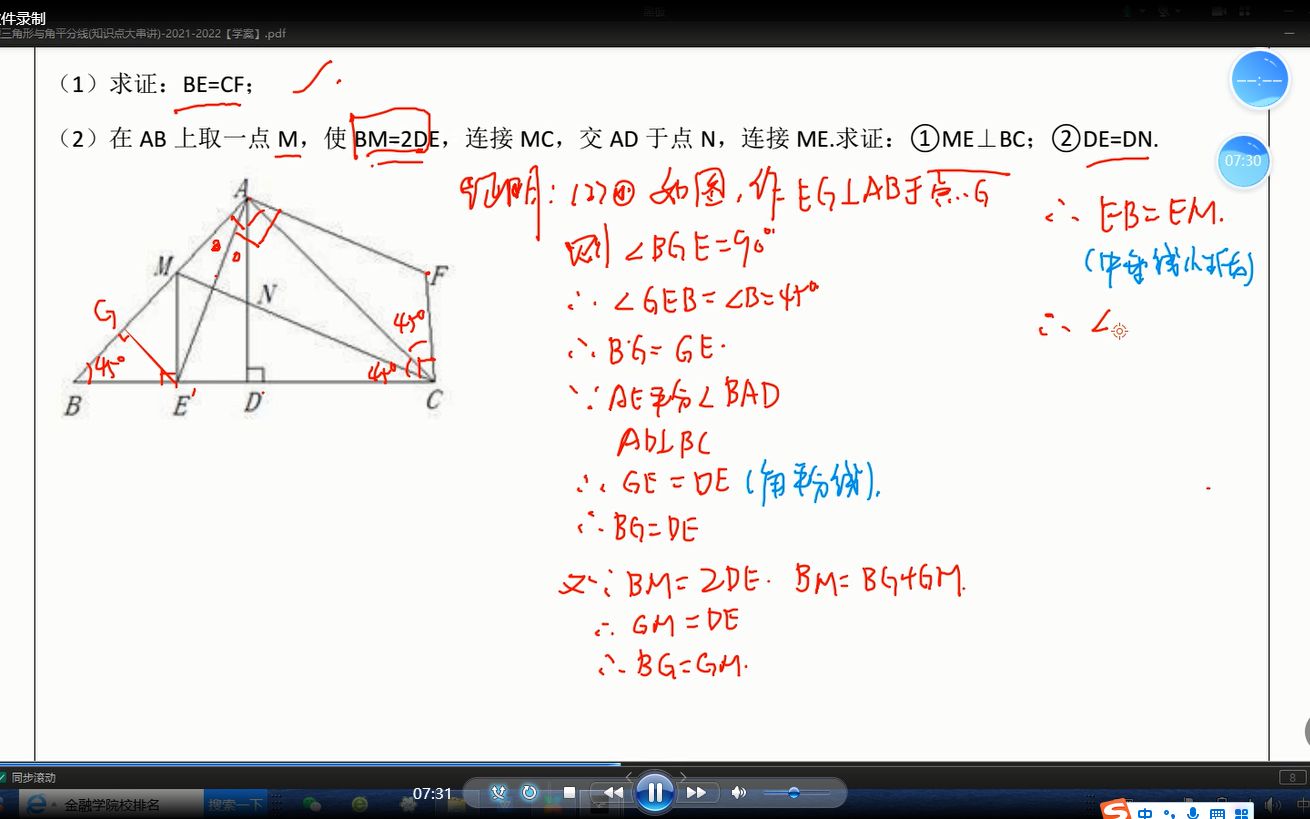 件录制
三角形与角平分线(知识点大串讲)-2021-2022【学案】.pdf
（1）求证：BE=CF；
（2）在 AB 上取一点 M，使 BM=2DE，连接 MC，交 AD 于点 N，连接 ME.求证：①ME⊥BC；②DE=DN.
07:30
证明：(2)① 如图，作EG⊥AB于点G
则∠BGE=90°
∴∠GEB=∠B=45°
∴BG=GE.
∵AE平分∠BAD
AD⊥BC
∴GE=DE (角平分线).
∴BG=DE
又∵BM=2DE. BM=BG+GM.
∴GM=DE
∴BG=GM.
∴EB=EM.
∴∠
A
M
F
N
G
45°
45°
45°
B
E
D
C
同步滚动
8
07:31
金融学院校排名
搜索一下
中